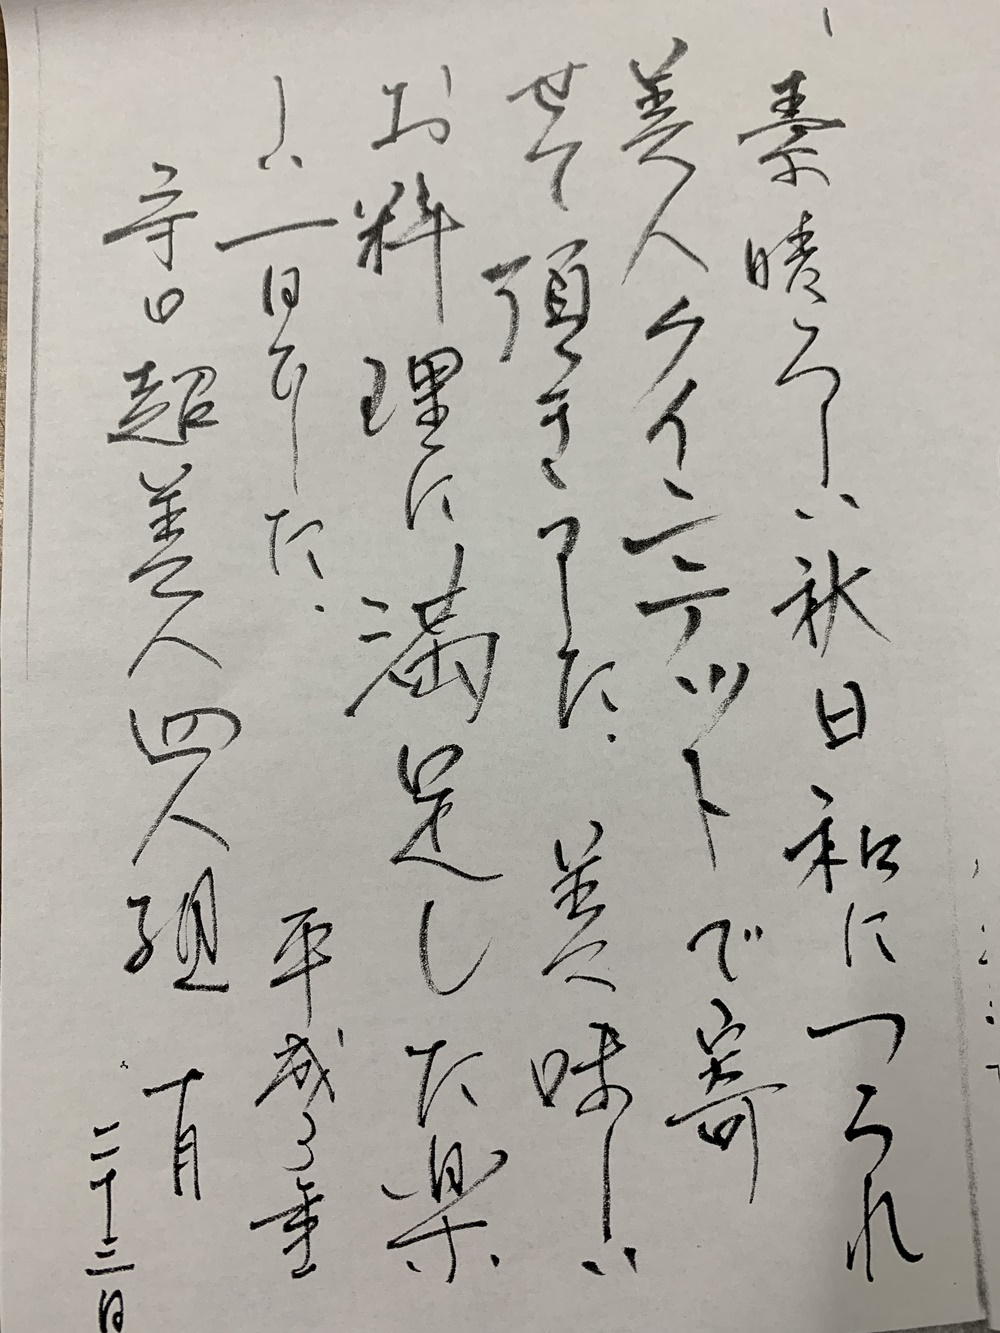 素晴らしい秋日和につられ
美人クインテットで寄
せて頂きました。美味しい
お料理に満足した楽
しい一日でした。
平成
超美人四人組
十月
二十三日